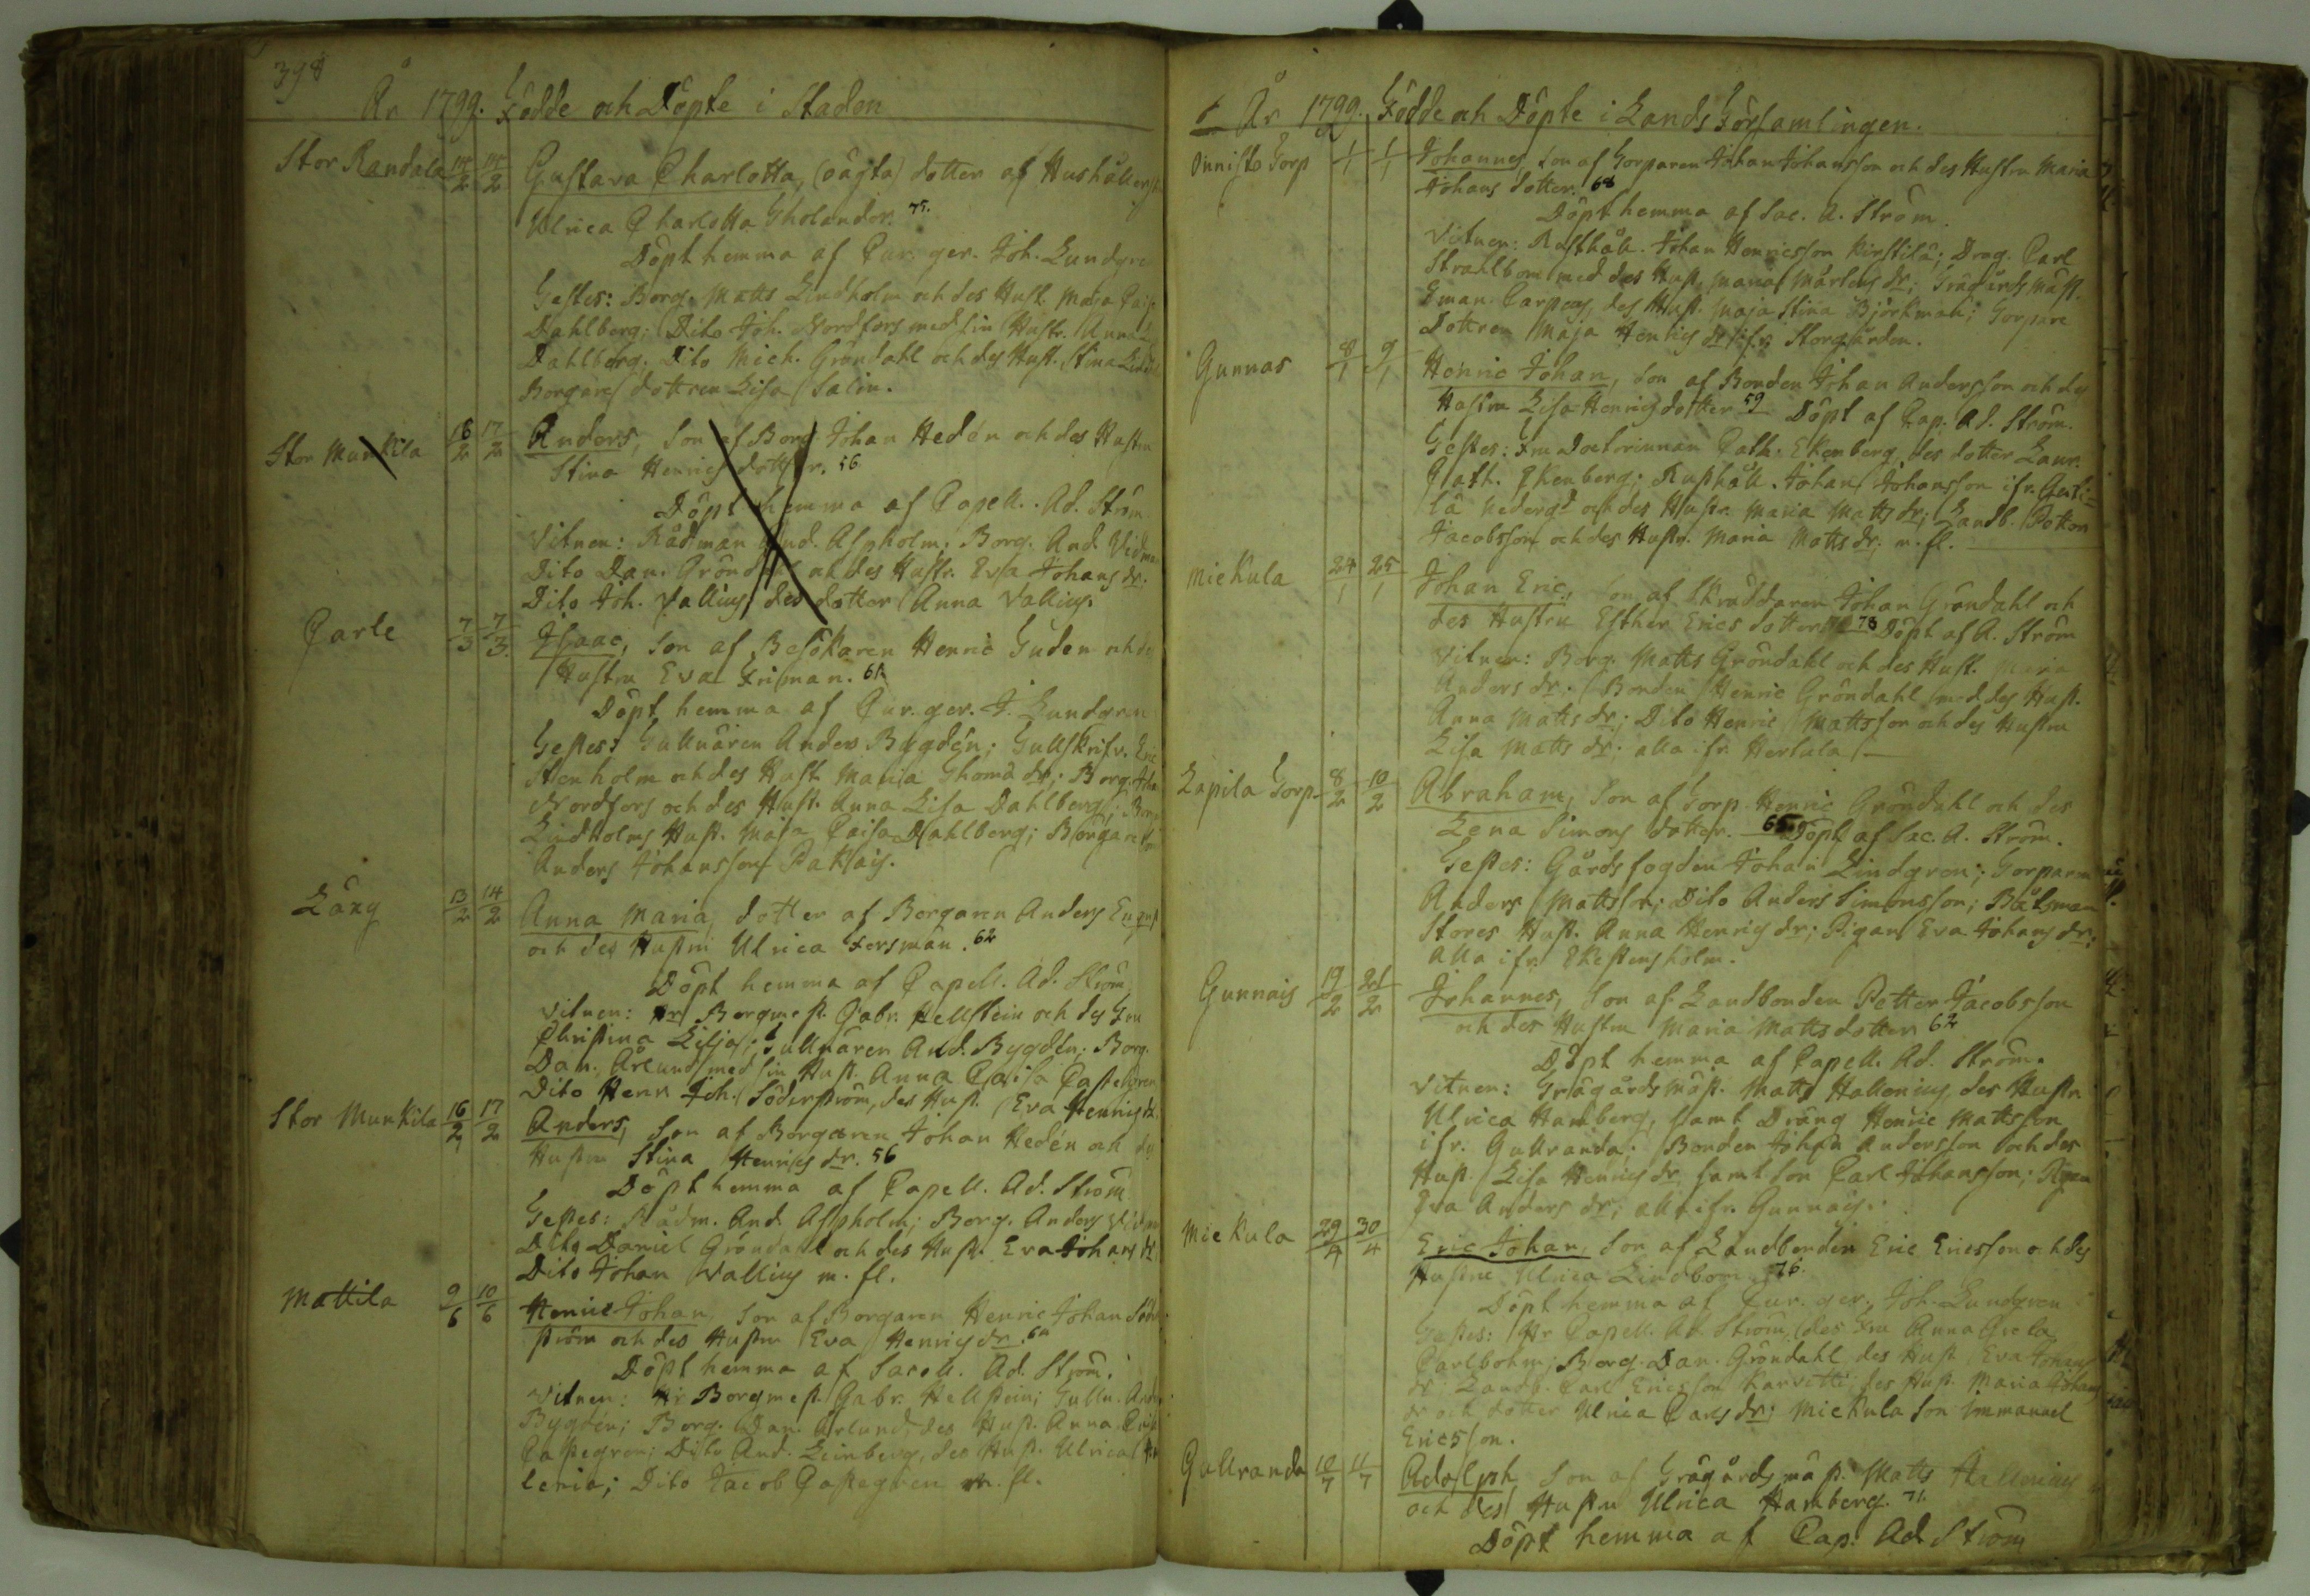 398
År 1799. Födde och Döpte i Staden
Stor Randala 14/2 14/2 Gustava Charlotta, (oägta) dotter af Hushållersk
Ulrica Charlotta Tholander. 75.
Döpt hemma af Cur. ger. Joh. Lundgre
Testes: Borg. Matts Lindholm och des Hust. Maja Cais
Dahlberg; Dito Joh. Nordfors med sin Hustr. Anna
Dahlberg. Dito Mich. Gröndahl och des Hust. Stina
Borgare dottren Lisa Salin.
Stor Munkila 16/2 17/2 Anders, Son af Borg. Johan Hedén och des Hustru
Stina Henrics dotter. 56
Döpt hemma af Capell. Ad. Ström
Vitnen: Rådman And. Aspholm; Borg. And. Vidm
Dito Dan. Gröndahl och des Hustr. Eva Johans dr.
Dito Joh. Vallius, des dotter Anna Vallius.
Carle 7/3 7/3 Isaac, Son af Besökaren Henric Guden och des
Hustru Eva Friman. 61
Döpt hemma af Cur. ger. J. Lundgren
Testes: Tullnären Anders Bygdén; Tullskrifv. Eric
Stenholm och des Hust. Maria Thomæ dr; Borg. Joha
Nordfors och des Hust. Anna Lisa Dahlberg; Borg
Lindholms Hust. Maja Caisa Dahlberg; Borgare
Anders Johansson Pakais.
Lång 13/2 14/2 Anna Maria, dotter af Borgaren Anders
och des Hustru Ulrica Forsman. 62
Döpt hemma af Capell. Ad. Ström
Vitnen: Hr Borgmest. Gabr. Hellstein och des Fru
Christina Lilja; Tullnären And. Bygdén; Borg.
Dan. Arlund med sin Hust. Anna Caisa Castegren
Dito Henr. Joh. Söderström, des Hust. Eva Henrics dr.
Stor Munkila 16/2 17/2 Anders, Son af Borgaren Johan Hedén och des
Hustru Stina Henrics dr. 56
Döpt hemma af Capell. Ad. Ström
Testes: Rådm. And. Aspholm; Borg. Anders Vidm
Dito Daniel Gröndahl och des Hust. Eva Johans dr
Dito Johan Wallius m. fl.
Mattila 9/6 10/6 Henric Johan, Son af Borgaren Henric Johan Söder
ström och des Hustru Eva Henrics dr.
Döpt hemma af Sacell. Ad. Ström.
Vitnen: Hr Borgmest. Gabr. Hellstein; Tulln. And
Bygdén; Borg. Dan. Arlund, des Hust. Anna Cais
Castegren; Dito And. Leinberg, des Hust. Ulrica
lenia; Dito Jacob Castegren m. fl.
År 1799. Födde och Döpte i Lands Församlingen.
Onnisto Torp 1/1 1/1 Johannes, Son af Torparen Johan Johansson och des Hustru Maria
Johans dotter. 68
Döpt hemma af Sac. A. Ström.
Vitnen: Rusthåll. Johan Henricsson Kirstilä; Drag. Carl
Strahlbom med des Hust. Maria Mårtens dr; Trägårds mäst.
Eman. Carpens, des Hust. Maja Stina Björkman; Torpare
Dottren Maja Henrics dr ifr. Storgården.
Gunnas 8/1 9/1 Henric Johan, Son af Bonden Johan Andersson och des
Hustru Lisa Henrics dotter 59 Döpt af Cap. Ad. Ström.
Testes: Fru Doctorinnan Cath. Ekenberg, des dotter Laur.
Cath. Ekenberg; Rusthåll. Johan Johansson ifr.
lä Nederg. och des Hustr. Maria Matts dr; Landb. Petter
Jacobsson och des Hustr. Maria Matts dr. m. fl.
Miekula 24/1 25/1 Johan Eric, Son af Skräddaren Johan Gröndahl och
des Hustru Esther Erics dotter 78 Döpt af A. Ström
Vitnen: Borg. Matts Gröndahl och des Hust. Maria
Anders dr. Bonden Henric Gröndahl med des Hust.
Anna Matts dr; Dito Henric Mattsson och des Hustru
Lisa Matts dr. alla ifr. Hertula
Lapila Torp. 8/2 10/2 Abraham, Son af Torp. Henric Gröndahl och des
Lena Simons dotter. 65 Döpt af Sac. A. Ström.
Testes: Gårds fogden Johan Lindgren; Torparen
Anders Mattsson; Dito Anders Simonsson; Båtsman
Stores Hust. Anna Henrics dr; Pigan Eva Johans dr:
Alla ifr. Ekestensholm.
Gunnais 19/2 21/2 Johannes, Son af Landbonden Petter Jacobsson
och des Hustru Maria Mattsdotter 62
Döpt hemma af Capell. Ad. Ström.
Vitnen: Trägårdsmäst. Matts Hallenius, des Hustr.
Ulrica Hamberg, samt Dräng Henric Mattsson
ifr. Gullranda; Bonden Johan Andersson och des
Hust. Lisa Henrics dr, samt Son Carl Johansson; Pigan
Eva Anders dr; alla ifr. Gunnais.
Miekula 29/4 30/4 Eric Johan, Son af Landbonden Eric Ericsson och des
Hustru Ulrica Lindbom. 76
Döpt hemma af Cur. ger. Joh. Lundgren
Testes: Hr Capell. Ad. Ström, des Fru Anna Greta
Carlbohm; Borg. Dan. Gröndahl des Hust. Eva Johans
dr. Landb. Carl Ericsson Karvetti des Hust. Maria Johans
dr och dotter Ulrica Carls dr; Miekula Son Immanuel
Ericsson.
Gullranda 10/7 11/7 Adolph, Son af Trägårds mäst. Matts Hallenius
och des Hustru Ulrica Hamberg. 71.
Döpt hemma af Cap. Ad Ström